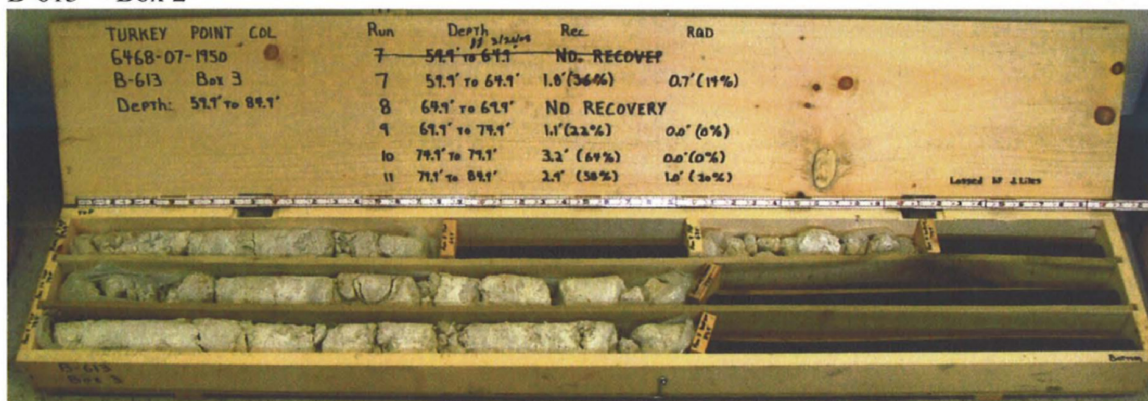 TURKEY POINT COL
6468-07-1950
B-613 Box 3
Depth: 59.9' TO 84.9'
Run Depth Rec. RQD
7 59.9' TO 64.9' NO. RECOVER
7 59.9' TO 64.9' 1.8' (36%) 0.7' (14%)
8 64.9' TO 69.9' NO RECOVERY
9 69.9' TO 74.9' 1.1' (22%) 0.0' (0%)
10 74.9' TO 79.9' 3.2' (64%) 0.0' (0%)
11 79.9' TO 84.9' 2.9' (58%) 1.0' (20%)
Logged by
TOP
Bottom
B-613
Box 3